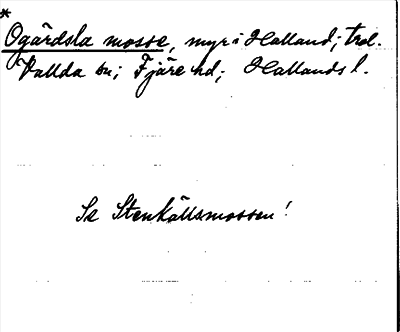 *
Ogärdsla mosse, myr i Halland; trol.
Vallda sn; Fjäre hd; Hallands l.
Se Stenkällsmossen!